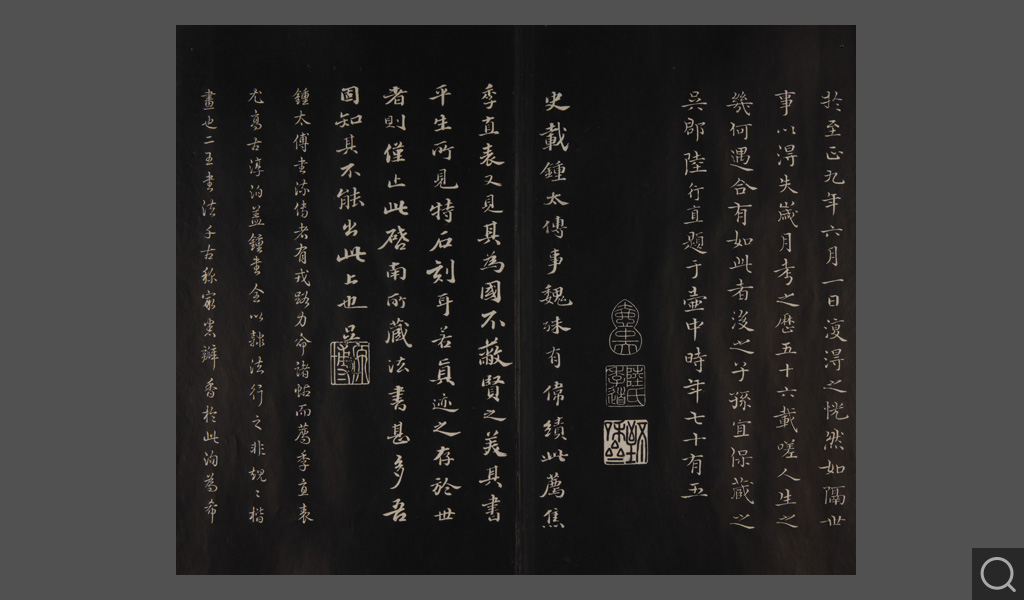 於至正九年六月一日復得之恍然如隔世
事以得失歲月考之歷五十六載嗟人生之
幾何遇合有如此者沒之子孫宜保藏之
吳郡陸行直題于壺中時年七十有五
史載鍾太傅事魏殊有偉績此薦焦
季直表又見其為國不蔽賢之美其書
平生所見特石刻耳若真迹之存於世
者則僅止此啓南所藏法書甚多吾
固知其不能出此上也 吳
鍾太傅書流傳者有戎路力命諸帖而薦季直表
尤高古淳泊蓋鍾書全以隸法行之非規〻楷
畫也二王書法千古稱最宗辦香於此洵為希